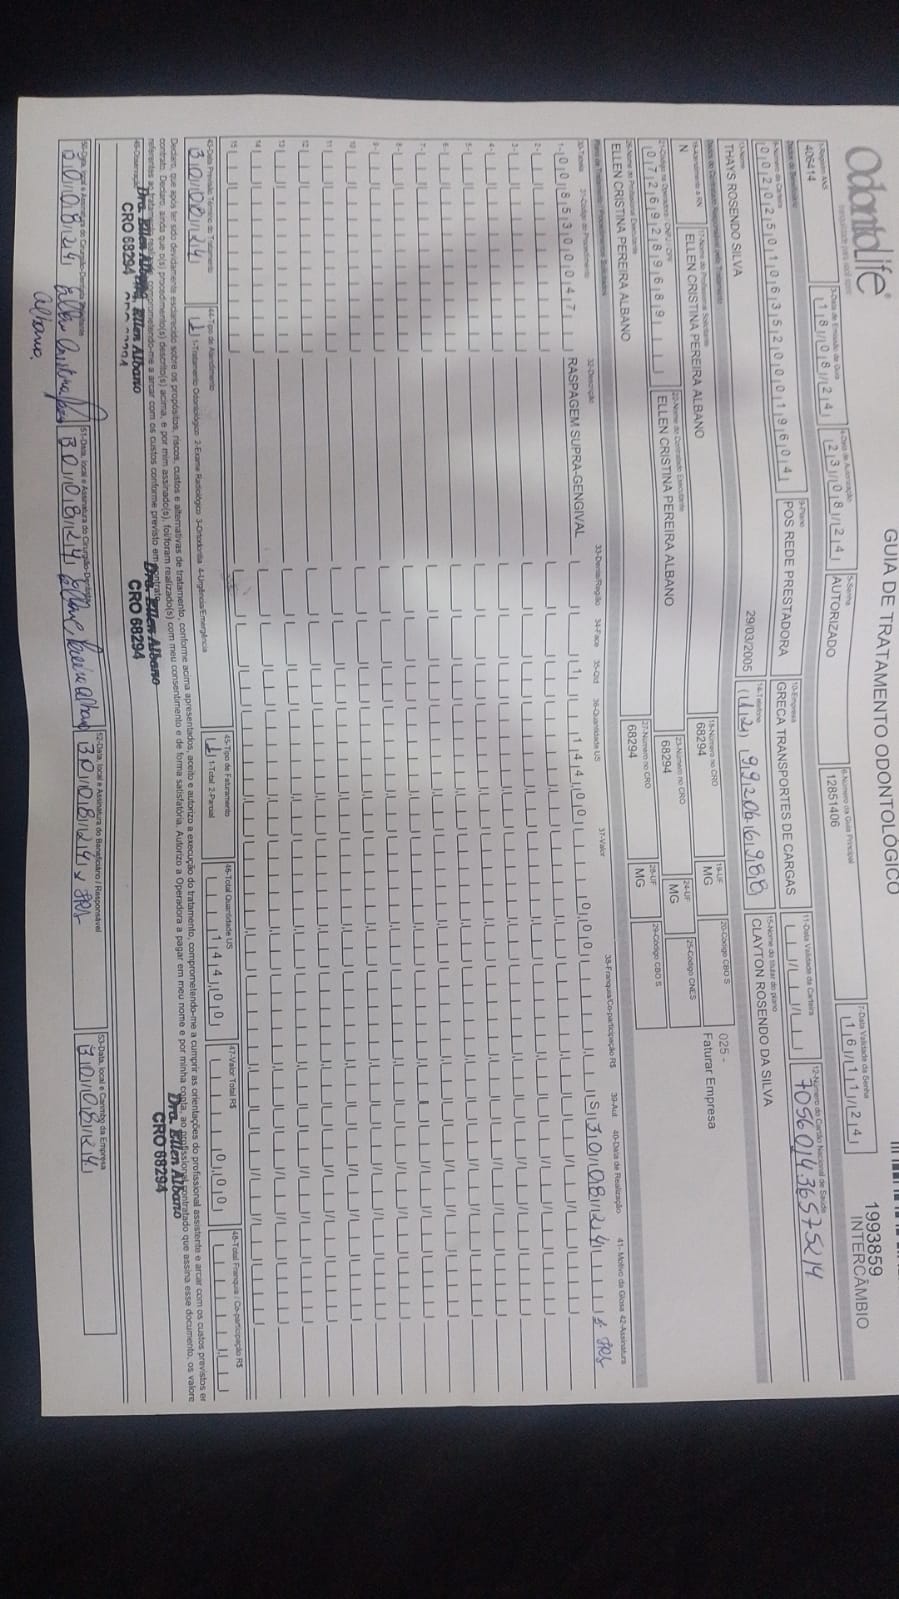 OdontoLife®
GUIA DE TRATAMENTO ODONTOLÓGICO
1993859
INTERCÂMBIO
1-Registro ANS
406414
3-Data de Emissão da Guia
18/08/24
4-Data de Autorização
23/08/24
5-Senha
AUTORIZADO
6-Número da Guia Principal
12851406
7-Data Validade da Senha
16/11/24
8-Número da Carteira
002025010635200019604
9-Plano
POS REDE PRESTADORA
10-Empresa
GRECA TRANSPORTES DE CARGAS
11-Data Validade da Carteira
12-Número do Cartão Nacional de Saúde
THAYS ROSENDO SILVA
29/03/2005
14-Telefone
15-Nome do titular do plano
CLAYTON ROSENDO DA SILVA
16-Atendimento a RN
N
17-Nome do Profissional Solicitante
ELLEN CRISTINA PEREIRA ALBANO
18-Número no CRO
68294
19-UF
MG
20-Código CBO S
025 -
Faturar Empresa
07269289689
22-Nome do Contratado Executante
ELLEN CRISTINA PEREIRA ALBANO
23-Número no CRO
68294
24-UF
MG
25-Código CNES
26-Nome do Profissional Executante
ELLEN CRISTINA PEREIRA ALBANO
27-Número no CRO
68294
28-UF
MG
29-Código CBO S
30-Tabela 31-Código do Procedimento 32-Descrição 33-Dente/Região 34-Face 35-Qtd 36-Quantidade US 37-Valor 38-Franquia/Co-participação R$ 39-Aut 40-Data de Realização 41- Motivo da Glosa 42-Assinatura
1- 00 85300047 RASPAGEM SUPRA-GENGIVAL 1 144,00 0,00 S 30/08/24
2-
3-
4-
5-
6-
7-
8-
9-
10
11
12
13
14
15
43-Data Previsão Término do Tratamento
30/08/24
44-Tipo de Atendimento
1 1-Tratamento Odontológico 2-Exame Radiológico 3-Ortodontia 4-Urgência/Emergência
45-Tipo de Faturamento
1 1-Total 2-Parcial
46-Total Quantidade US
144,00
47-Valor Total R$
0,00
48-Total Franquia / Co-participação R$
Declaro, que após ter sido devidamente esclarecido sobre os propósitos, riscos, custos e alternativas de tratamento, conforme acima apresentados, aceito e autorizo a execução do tratamento, comprometendo-me a cumprir as orientações do profissional assistente e arcar com os custos previstos em
contrato. Declaro, ainda que o(s) procedimento(s) descrito(s) acima, e por mim assinado(s), foi/foram realizado(s) com meu consentimento e de forma satisfatória. Autorizo a Operadora a pagar em meu nome e por minha conta, ao profissional contratado que assina esse documento, os valore
comprometendo-me a arcar com os custos conforme previsto em contrato.
Dra. Ellen Albano
CRO 68294
Dra. Ellen Albano
CRO 68294
Dra. Ellen Albano
CRO 68294
30/08/24
30/08/24
52-Data, local e Assinatura do Beneficiário / Responsável
30/08/24
53-Data, local e Carimbo da Empresa
30/08/24
Albano